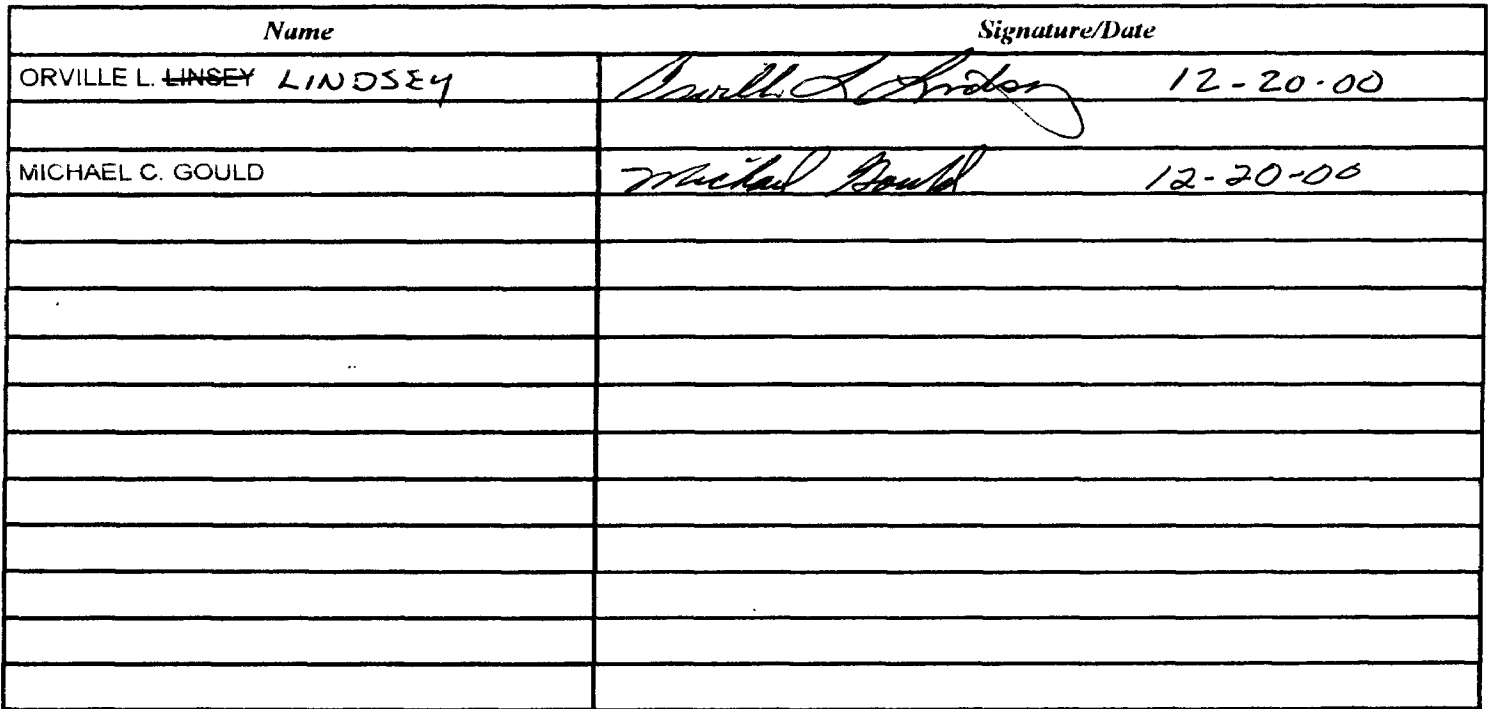 Name Signature/Date
ORVILLE L. LINSEY LINDSEY Orville L Lindsey 12-20-00
MICHAEL C. GOULD Michael Gould 12-20-00